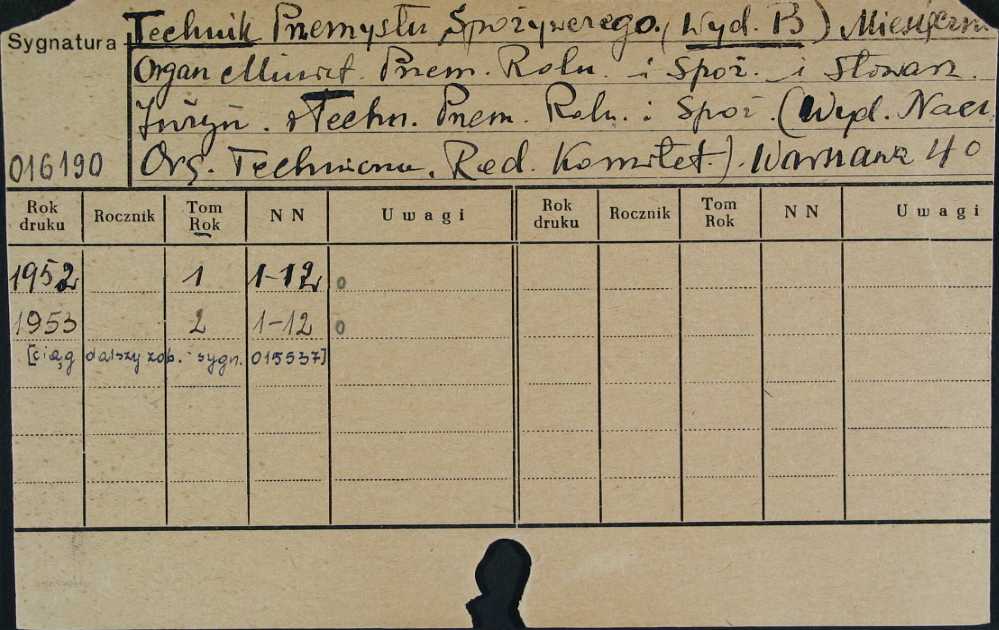 Sygnatura
Technik Przemysłu Spożywczego. (Wyd. B) Miesięczn
Organ Minist. Przem. Roln. i Spoż. i Stowarz.
Inżyn. i Techn. Przem. Roln. i Spoż (Wyd. Nacz
016190
Org. Techniczna. Red. Komitet.) Warszawa 40
Rok druku Rocznik Tom Rok NN Uwagi Rok druku Rocznik Tom Rok NN Uwagi
1952 1 1-12 o
1953 2 1-12 o
[ciąg dalszy zob. sygn. 015537]